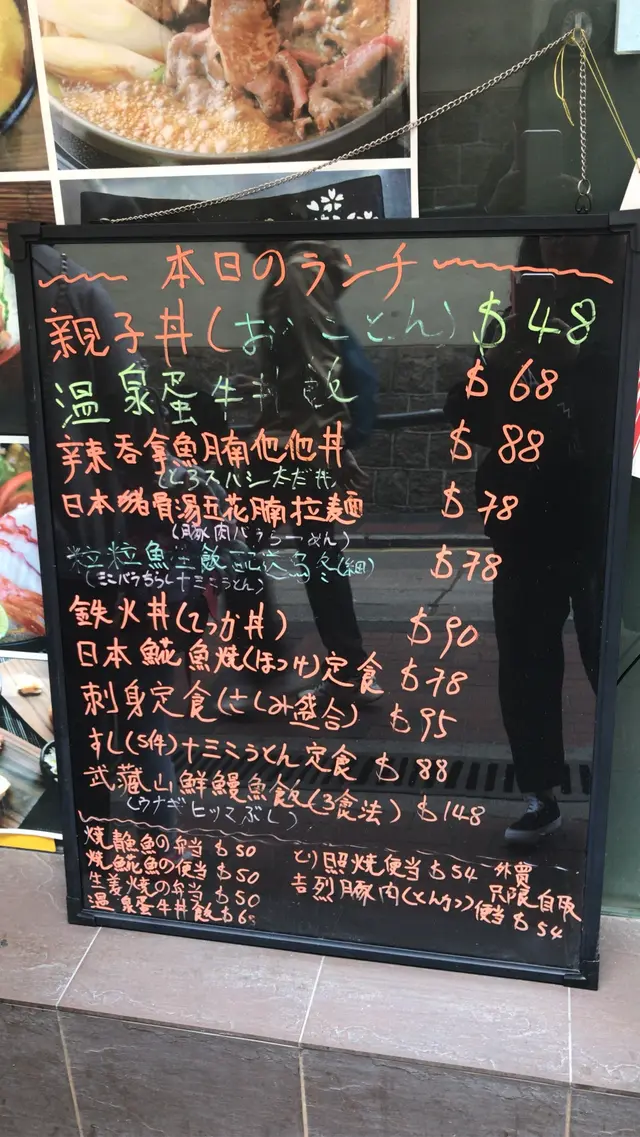 本日のランチ
親子丼(おやことん) $48
温泉蛋牛丼飯 $68
辣吞拿魚腩他他丼 $88
日本猪骨湯五花腩拉麺 $78
(豚肉バラらーめん)
粒粒魚生飯 冬(細) $78
(ミニバラちらし+ミニうとん)
鉄火丼(てっか丼) $90
日本𩸽魚焼(ほっけ)定食 $78
刺身定食(さしみ盛合) $95
すし(5件)+ミニうとん定食 $88
武藏山鮮鰻魚飯(3食法) $148
(ウナギヒツマぶし)
焼鯖魚の弁当 $50
焼𩸽魚の便当 $50
生姜焼の弁当 $50
温泉蛋牛丼飯 $68
とり照焼便当 $54
吉烈豚肉(とんかつ)便当 $54
外賣
只限自取